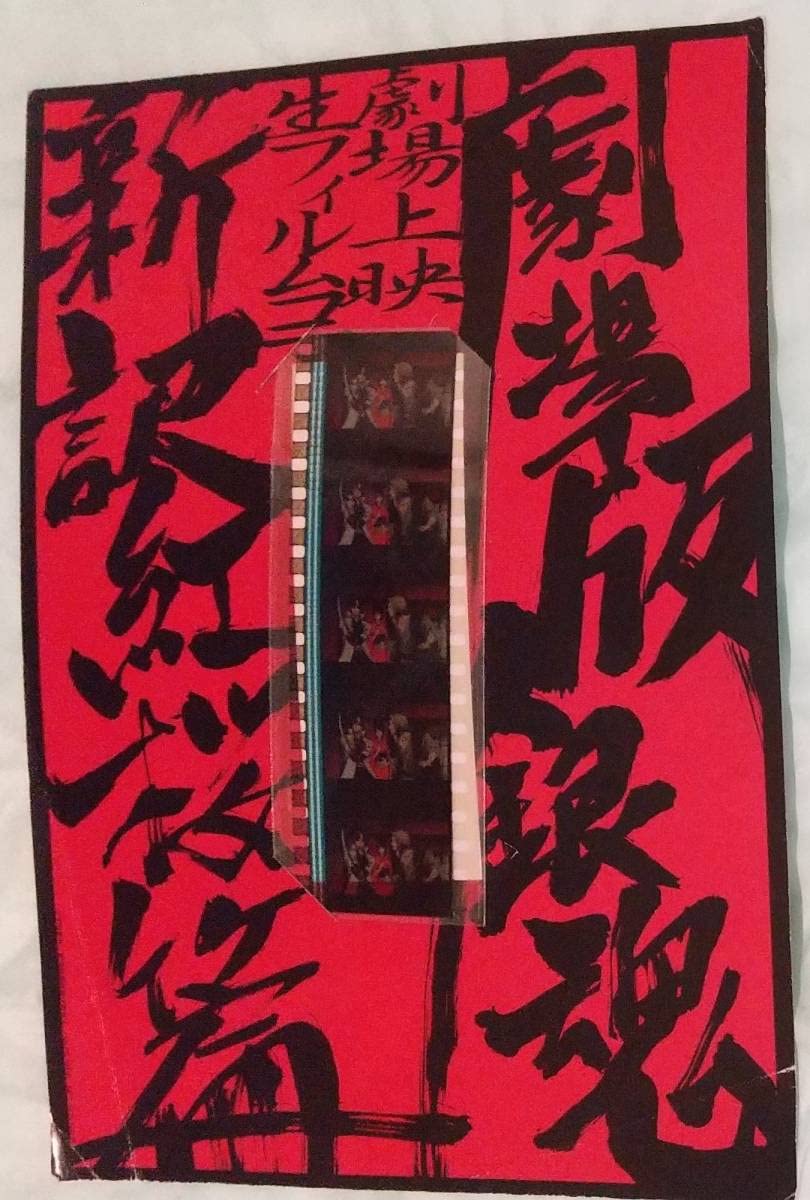 劇場版銀魂
劇場上映
生フィルムコマ
新訳紅桜篇